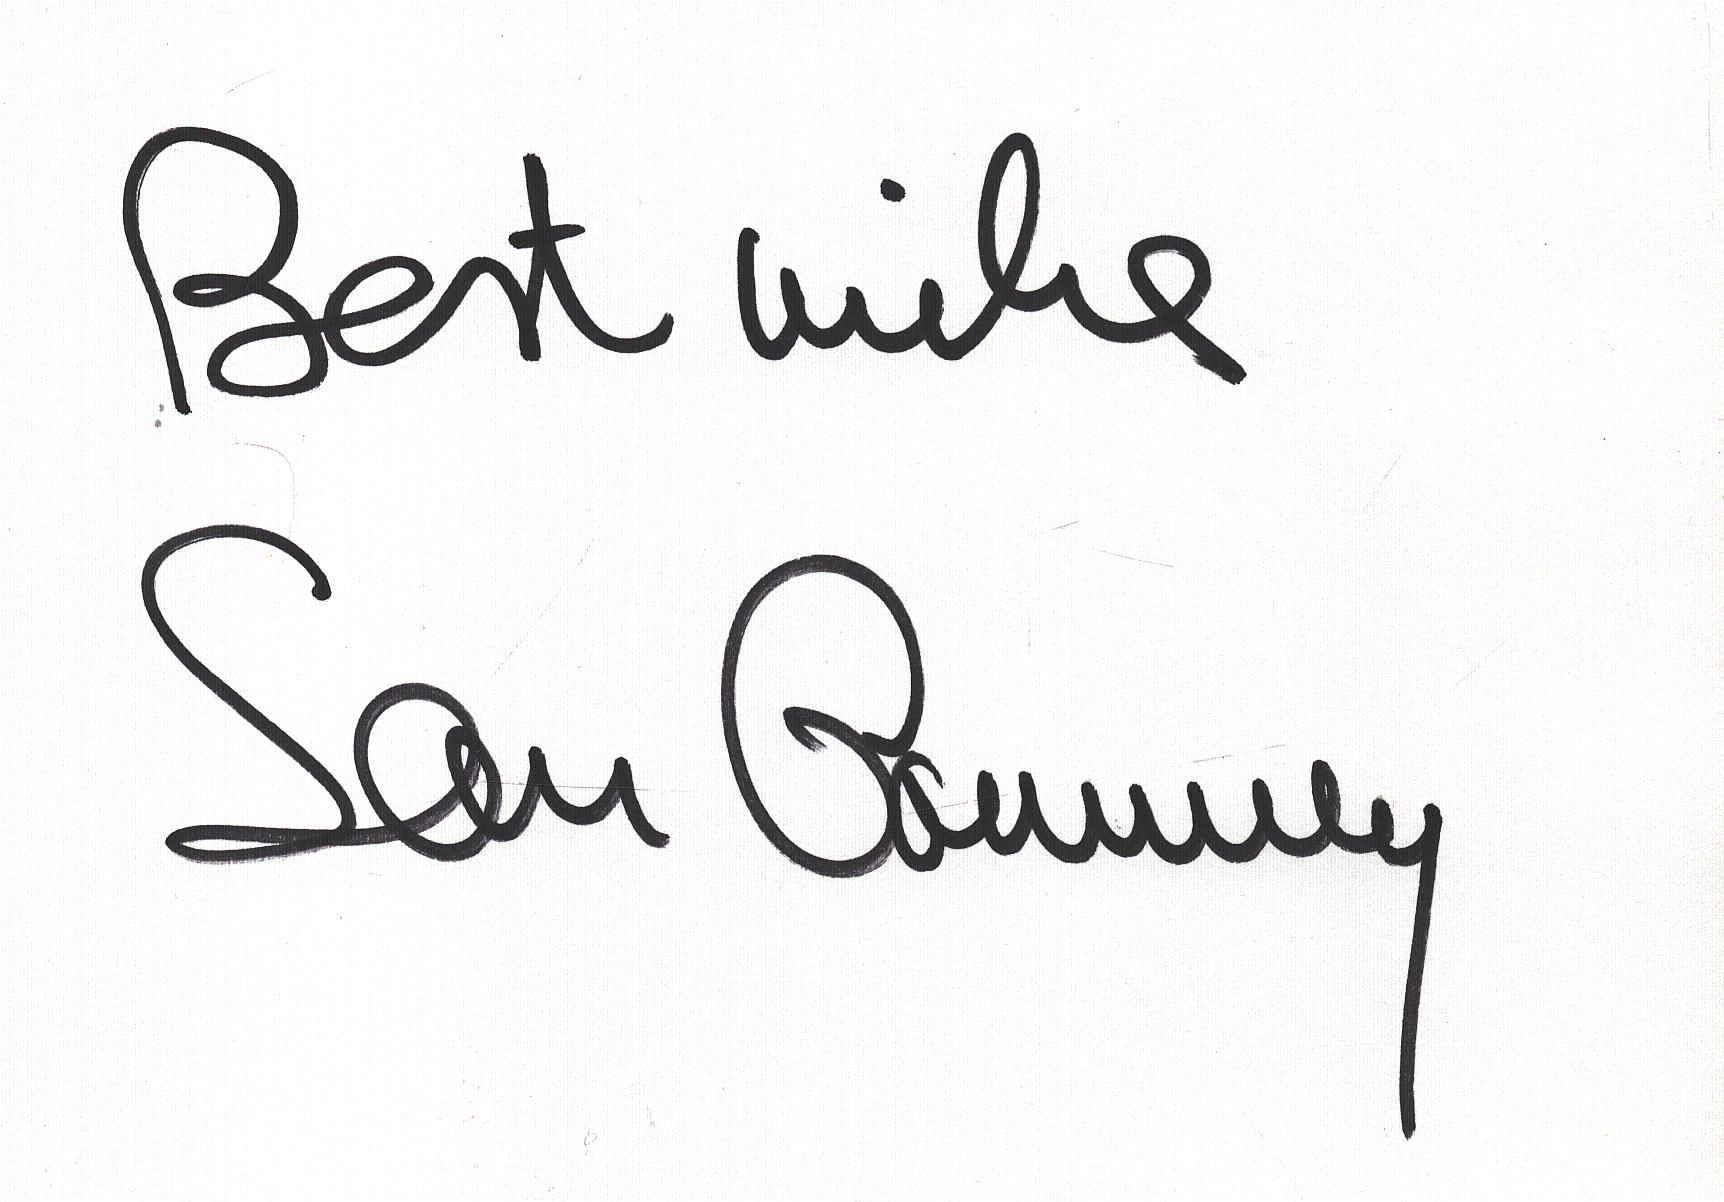 Best wishes
Sean Connery